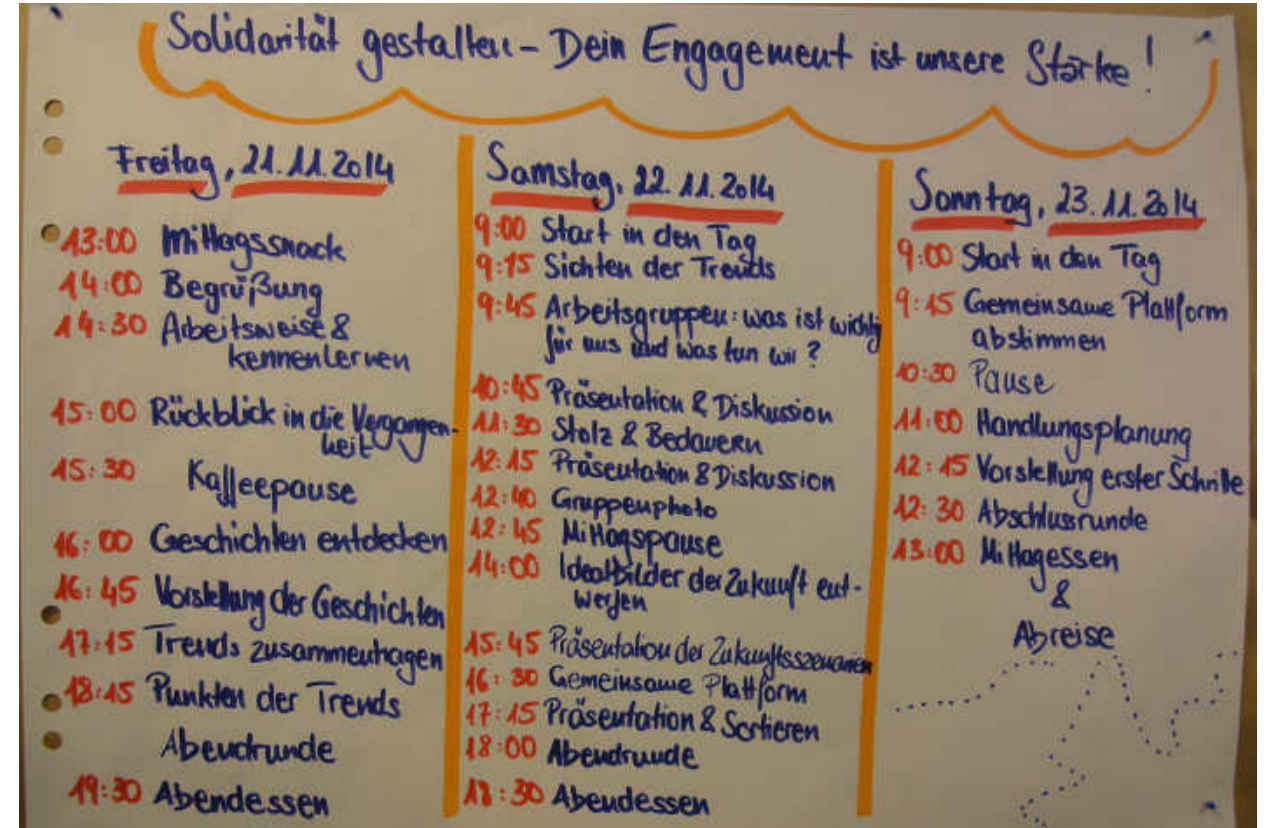 Solidarität gestalten - Dein Engagement ist unsere Stärke!
Freitag, 21.11.2014
13:00 Mittagssnack
14:00 Begrüßung
14:30 Arbeitsweise &
kennenlernen
15:00 Rückblick in die Vergangen-
heit
15:30 Kaffeepause
16:00 Geschichten entdecken
16:45 Vorstellung der Geschichten
17:15 Trends zusammentragen
18:15 Punkten der Trends
Abendrunde
19:30 Abendessen
Samstag, 22.11.2014
9:00 Start in den Tag
9:15 Sichten der Trends
9:45 Arbeitsgruppen: was ist wichtig
für uns und was tun wir?
10:45 Präsentation & Diskussion
11:30 Stolz & Bedauern
12:15 Präsentation & Diskussion
12:40 Gruppenphoto
12:45 Mittagspause
14:00 Idealbilder der Zukunft ent-
werfen
15:45 Präsentation der Zukunftsszenarien
16:30 Gemeinsame Plattform
17:15 Präsentation & Sortieren
18:00 Abendrunde
18:30 Abendessen
Sonntag, 23.11.2014
9:00 Start in den Tag
9:15 Gemeinsame Plattform
abstimmen
10:30 Pause
11:00 Handlungsplanung
12:15 Vorstellung erster Schritte
12:30 Abschlussrunde
13:00 Mittagessen
&
Abreise